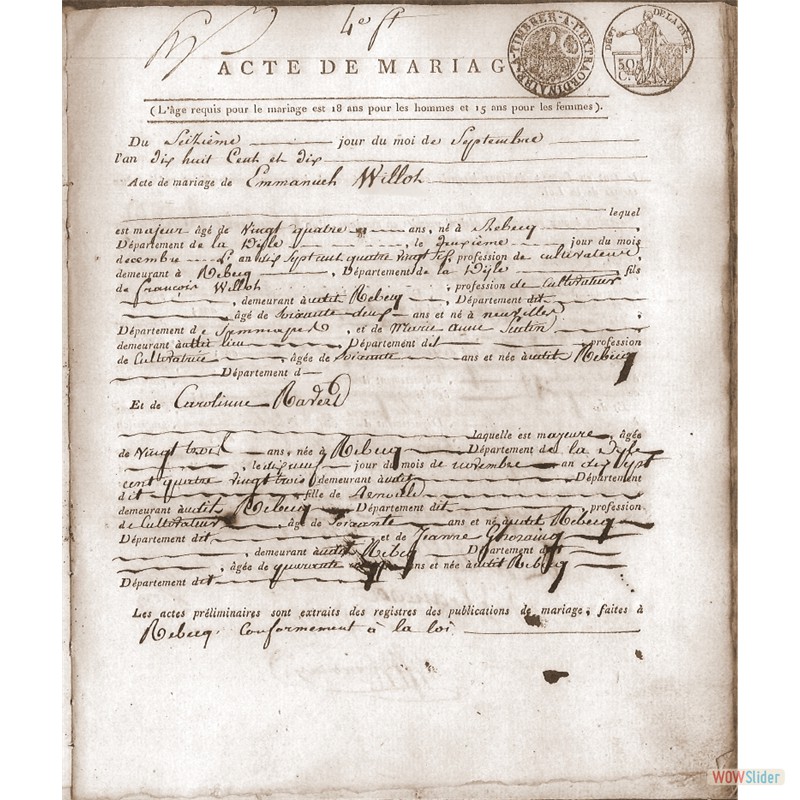 4e ft
TIMBRER-A-L'EXTRAORDINAIRE
DEPT DE LA DYLE
50 C.
ACTE DE MARIAG
(L'âge requis pour le mariage est 18 ans pour les hommes et 15 ans pour les femmes).
Du Seizième jour du moi de Septembre
l'an dix huit Cent et dix
Acte de mariage de Emmanuel Willot
lequel
est majeur âgé de Vingt quatre ans, né à Rebecq
Département de la Dyle, le deuxième jour du mois
decembre L'an dix Sept cent quatre vingt, profession de cultivateur
demeurant à Rebecq, Département de la Dyle fils
de François Willot, profession de Cultivateur
, demeurant audit Rebecq, Département dit
âgé de Soixante deux ans et né à
Département de, et de Marie Anne
demeurant audit lieu Département dit profession
de Cultivatrice âgée de Soixante ans et née audit Rebecq
Département d
Et de Carolinne
laquelle est majeure, âgée
de Vingt trois ans, née à Rebecq Département de la Dyle
, le dix neuf jour du mois de novembre an dix Sept
cent quatre vingt trois demeurant audit Département
dit fille de
demeurant audit Rebecq Département dit profession
de Cultivateur, âgé de Soixante ans et né audit Rebecq
Département dit et de Jeanne
, demeurant audit Rebecq Département dit
, âgée de quarante ans et née audit Rebecq
Département dit
Les actes préliminaires sont extraits des registres des publications de mariage, faites à
Rebecq, Conformement à la loi
WOWSlider